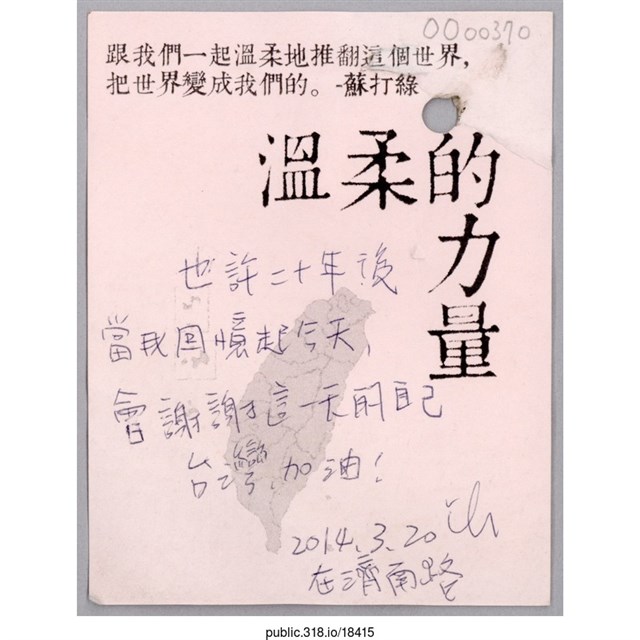 0000370
跟我們一起溫柔地推翻這個世界,
把世界變成我們的。-蘇打綠
溫柔的
力量
也許二十年後
當我回憶起今天,
會謝謝這一天的自己
台灣,加油!
2014.3.20
在濟南路
public.318.io/18415